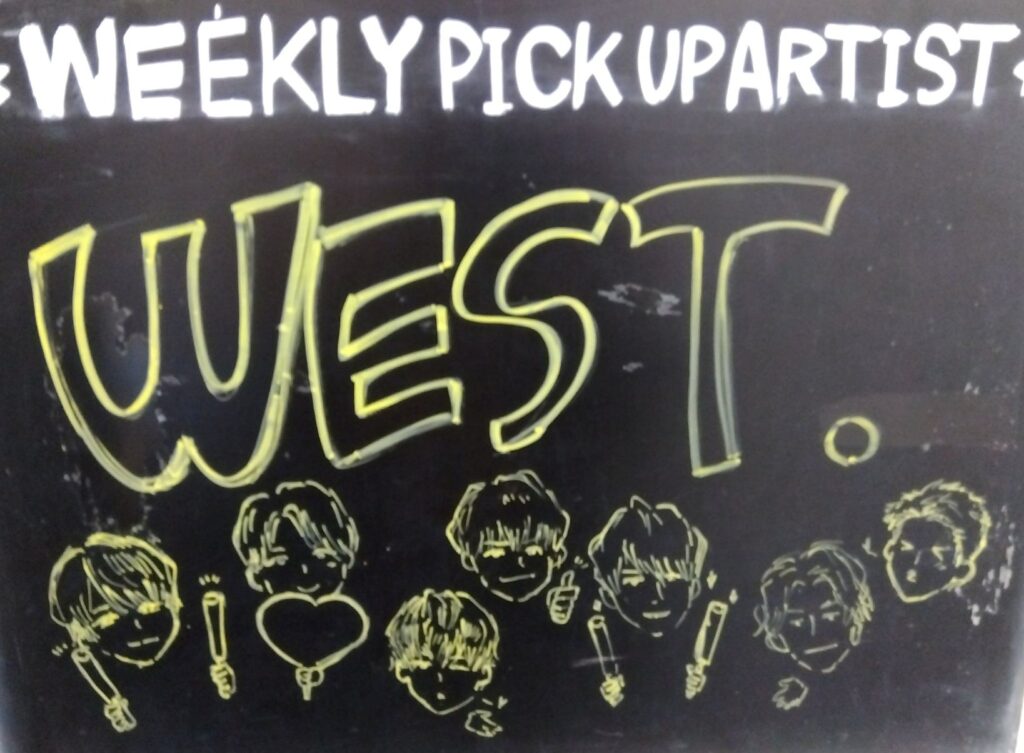 WEEKLY PICK UP ARTIST
WEST.